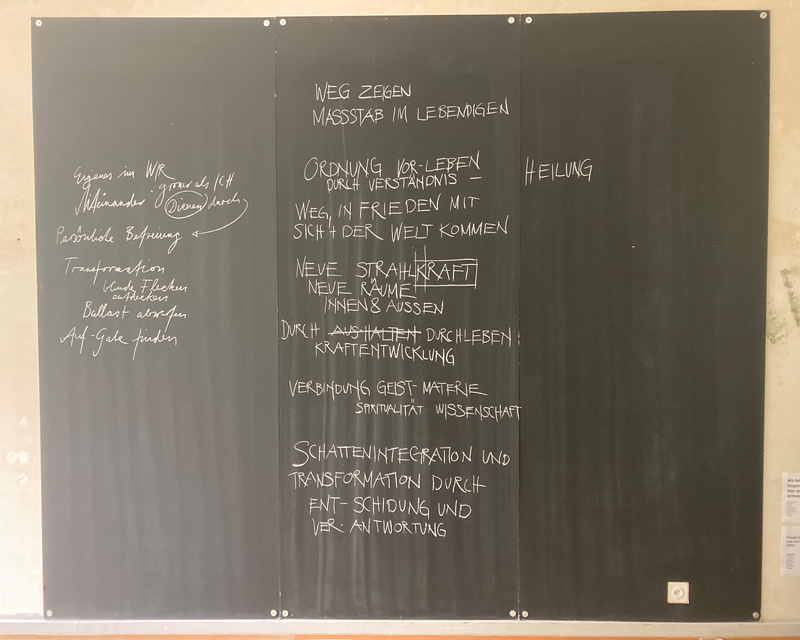 Eigenes im WIR
größer als ICH
Miteinander Dienen durch
Persönliche Befreiung
Transformation
blinde Flecken
entdecken
Ballast abwerfen
Auf-Gabe finden
WEG ZEIGEN
MASSSTAB IM LEBENDIGEN
ORDNUNG VOR-LEBEN
DURCH VERSTÄNDNIS –
WEG, IN FRIEDEN MIT
SICH + DER WELT KOMMEN
NEUE STRAHLKRAFT
NEUE RÄUME
INNEN & AUSSEN
DURCH AUSHALTEN DURCHLEBEN
KRAFTENTWICKLUNG
VERBINDUNG GEIST-MATERIE
SPIRITUALITÄT WISSENSCHAFT
SCHATTENINTEGRATION UND
TRANSFORMATION DURCH
ENT-SCHIDUNG UND
VER-ANTWORTUNG
HEILUNG